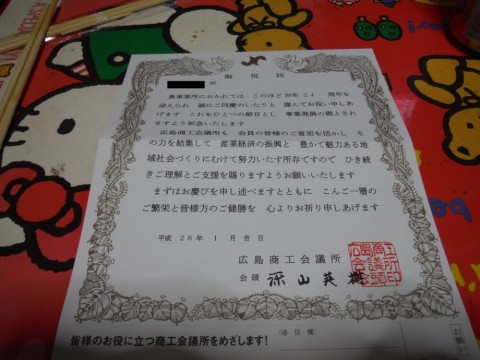 御祝詞
殿
貴事業所におかれては このほど創業24 周年を
迎えられ 誠にご同慶のいたりと 謹んでお祝い申しあ
げます これをひとつの節目とし 事業発展の礎とされ
ますよう祈念いたします
広島商工会議所も 会員の皆様のご意思を活かし そ
の力を結集して 産業経済の振興と 豊かで魅力ある地
域社会づくりにむけて努力いたす所存ですので ひき続
きご理解とご支援を賜りますようお願いいたします
まずはお慶びを申し述べますとともに こんご一層の
ご繁栄と皆様方のご健勝を 心よりお祈り申しあげます
平成 28年 1月吉日
広島商工会議所
会頭 深山英樹
広島商工会議所会頭印
(通信欄)
皆様のお役に立つ商工会議所をめざします!